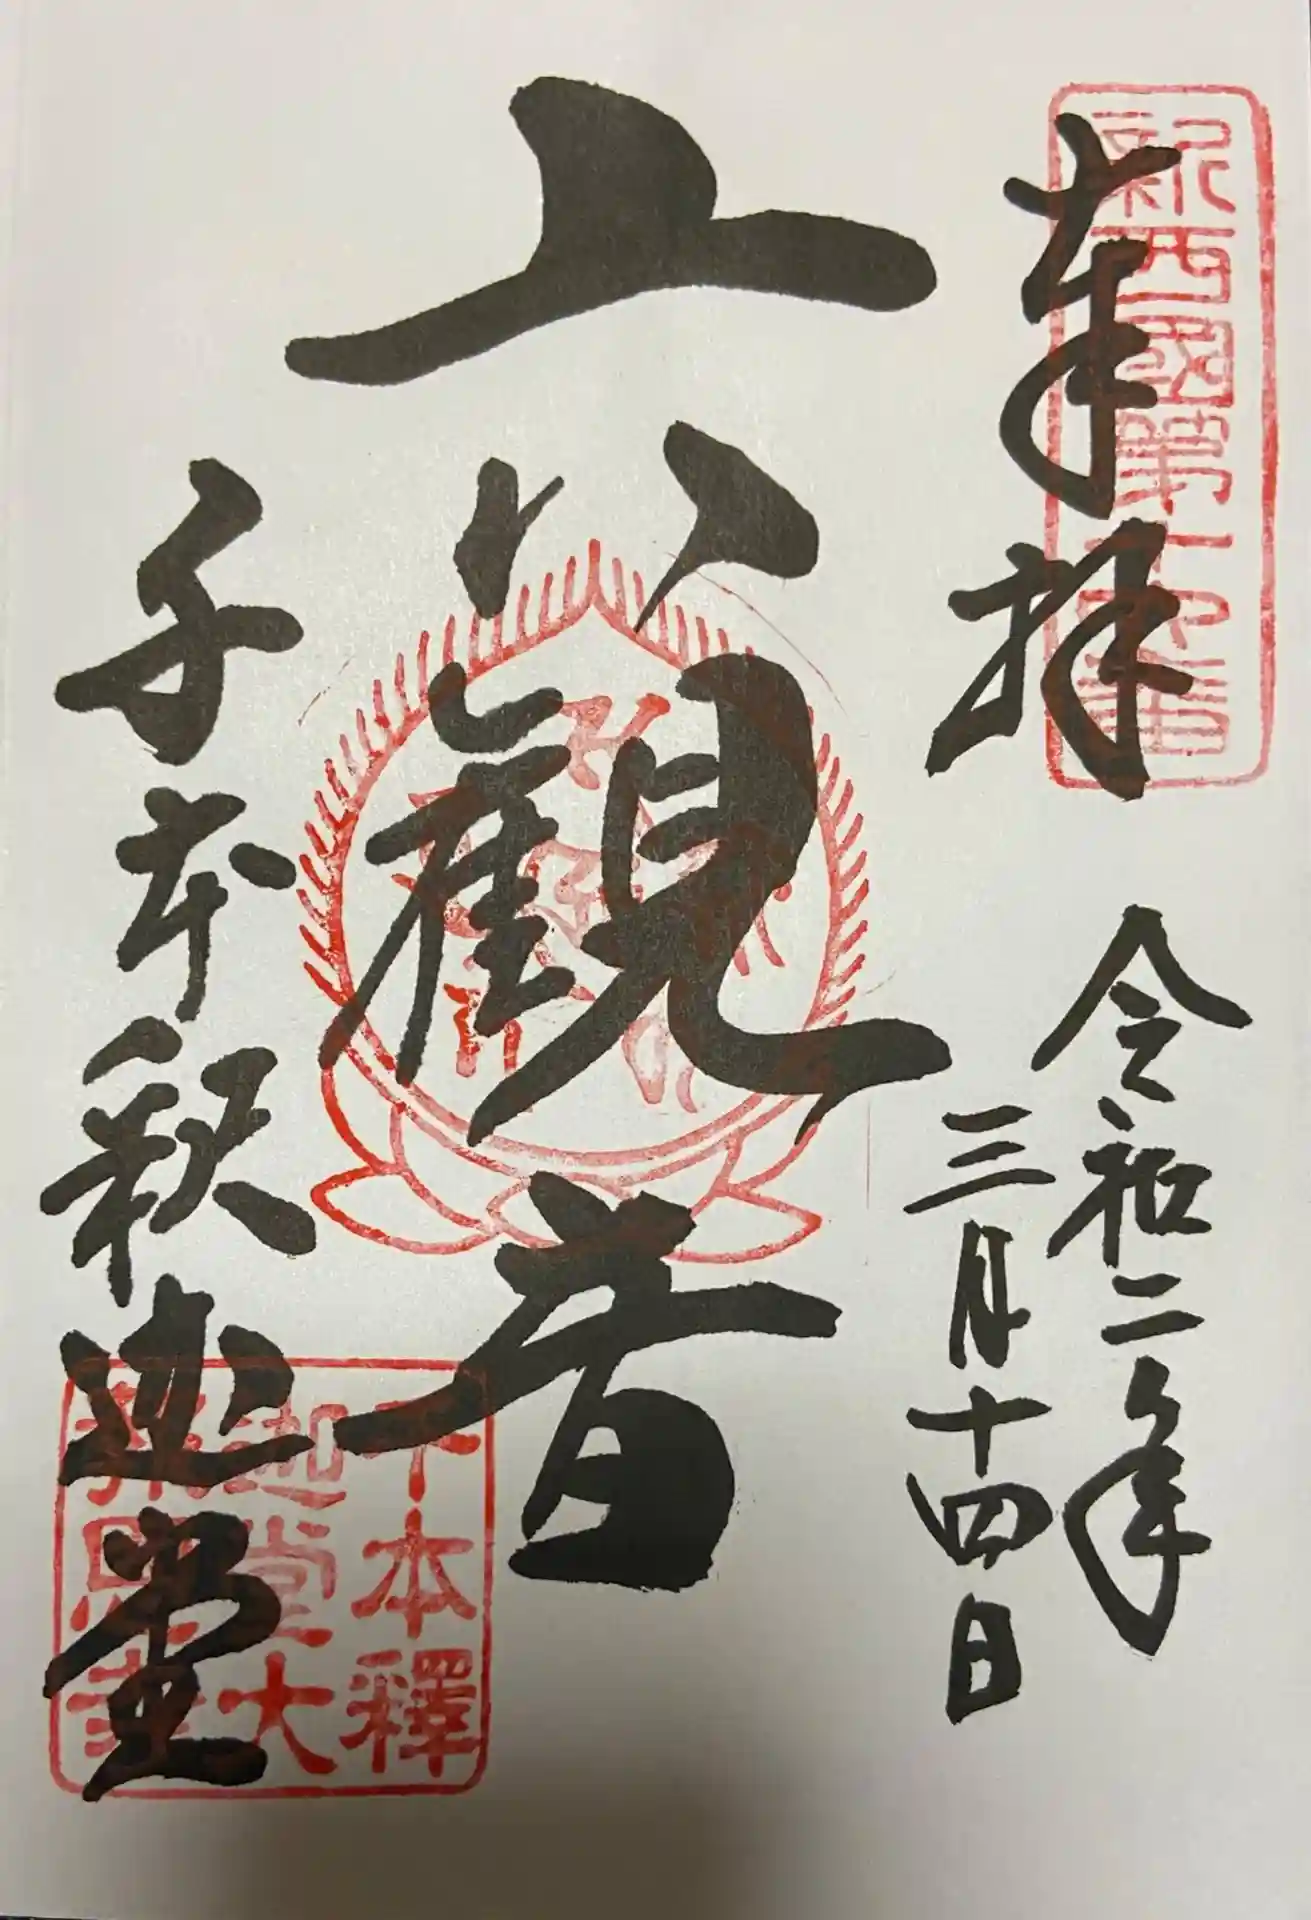 奉拝
新西國第十七番
令和二年
三月十四日
六観音
千本釈迦堂
千本釋
迦堂大
報恩寺